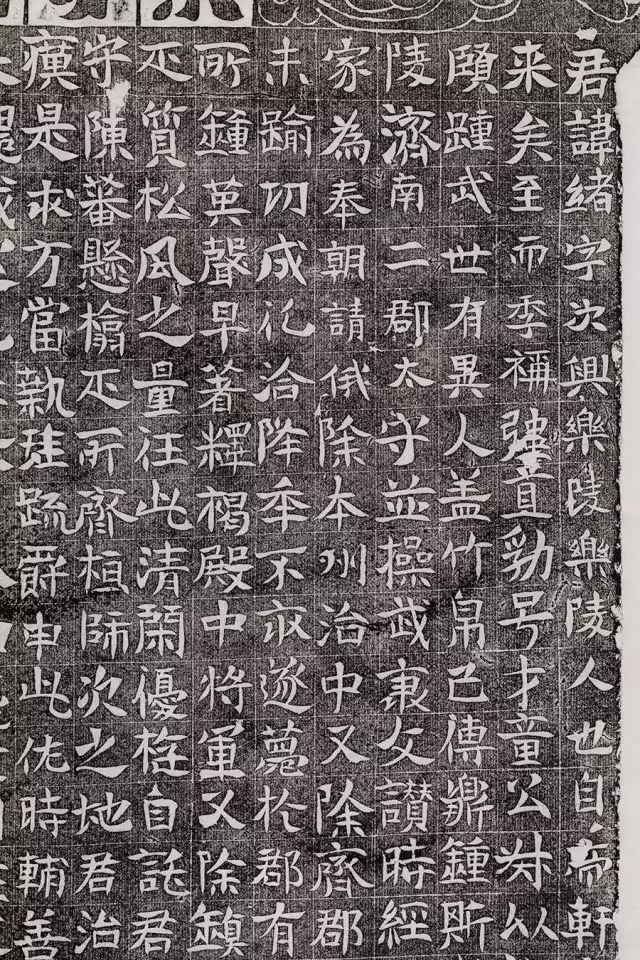 君諱緒字次興樂陵樂陵人也自帝軒
来矣至而秊直勁号才童公叔以
頤踵武世有異人盖竹帛已傳鼎鍾斯
陵濟南二郡太守並操武衷文讃時經
家為奉朝請俄除本州治中又除齊郡
未踰切成化洽降年不永遂薨於郡有
所鍾英聲早著釋褐殿中将軍又除鎮
丕質松風之量汪此清閑優遊自託君
守陳蕃懸榻丕所齊桓師次之地君治
瘼是求方當執珪疏爵申此佐時輔善